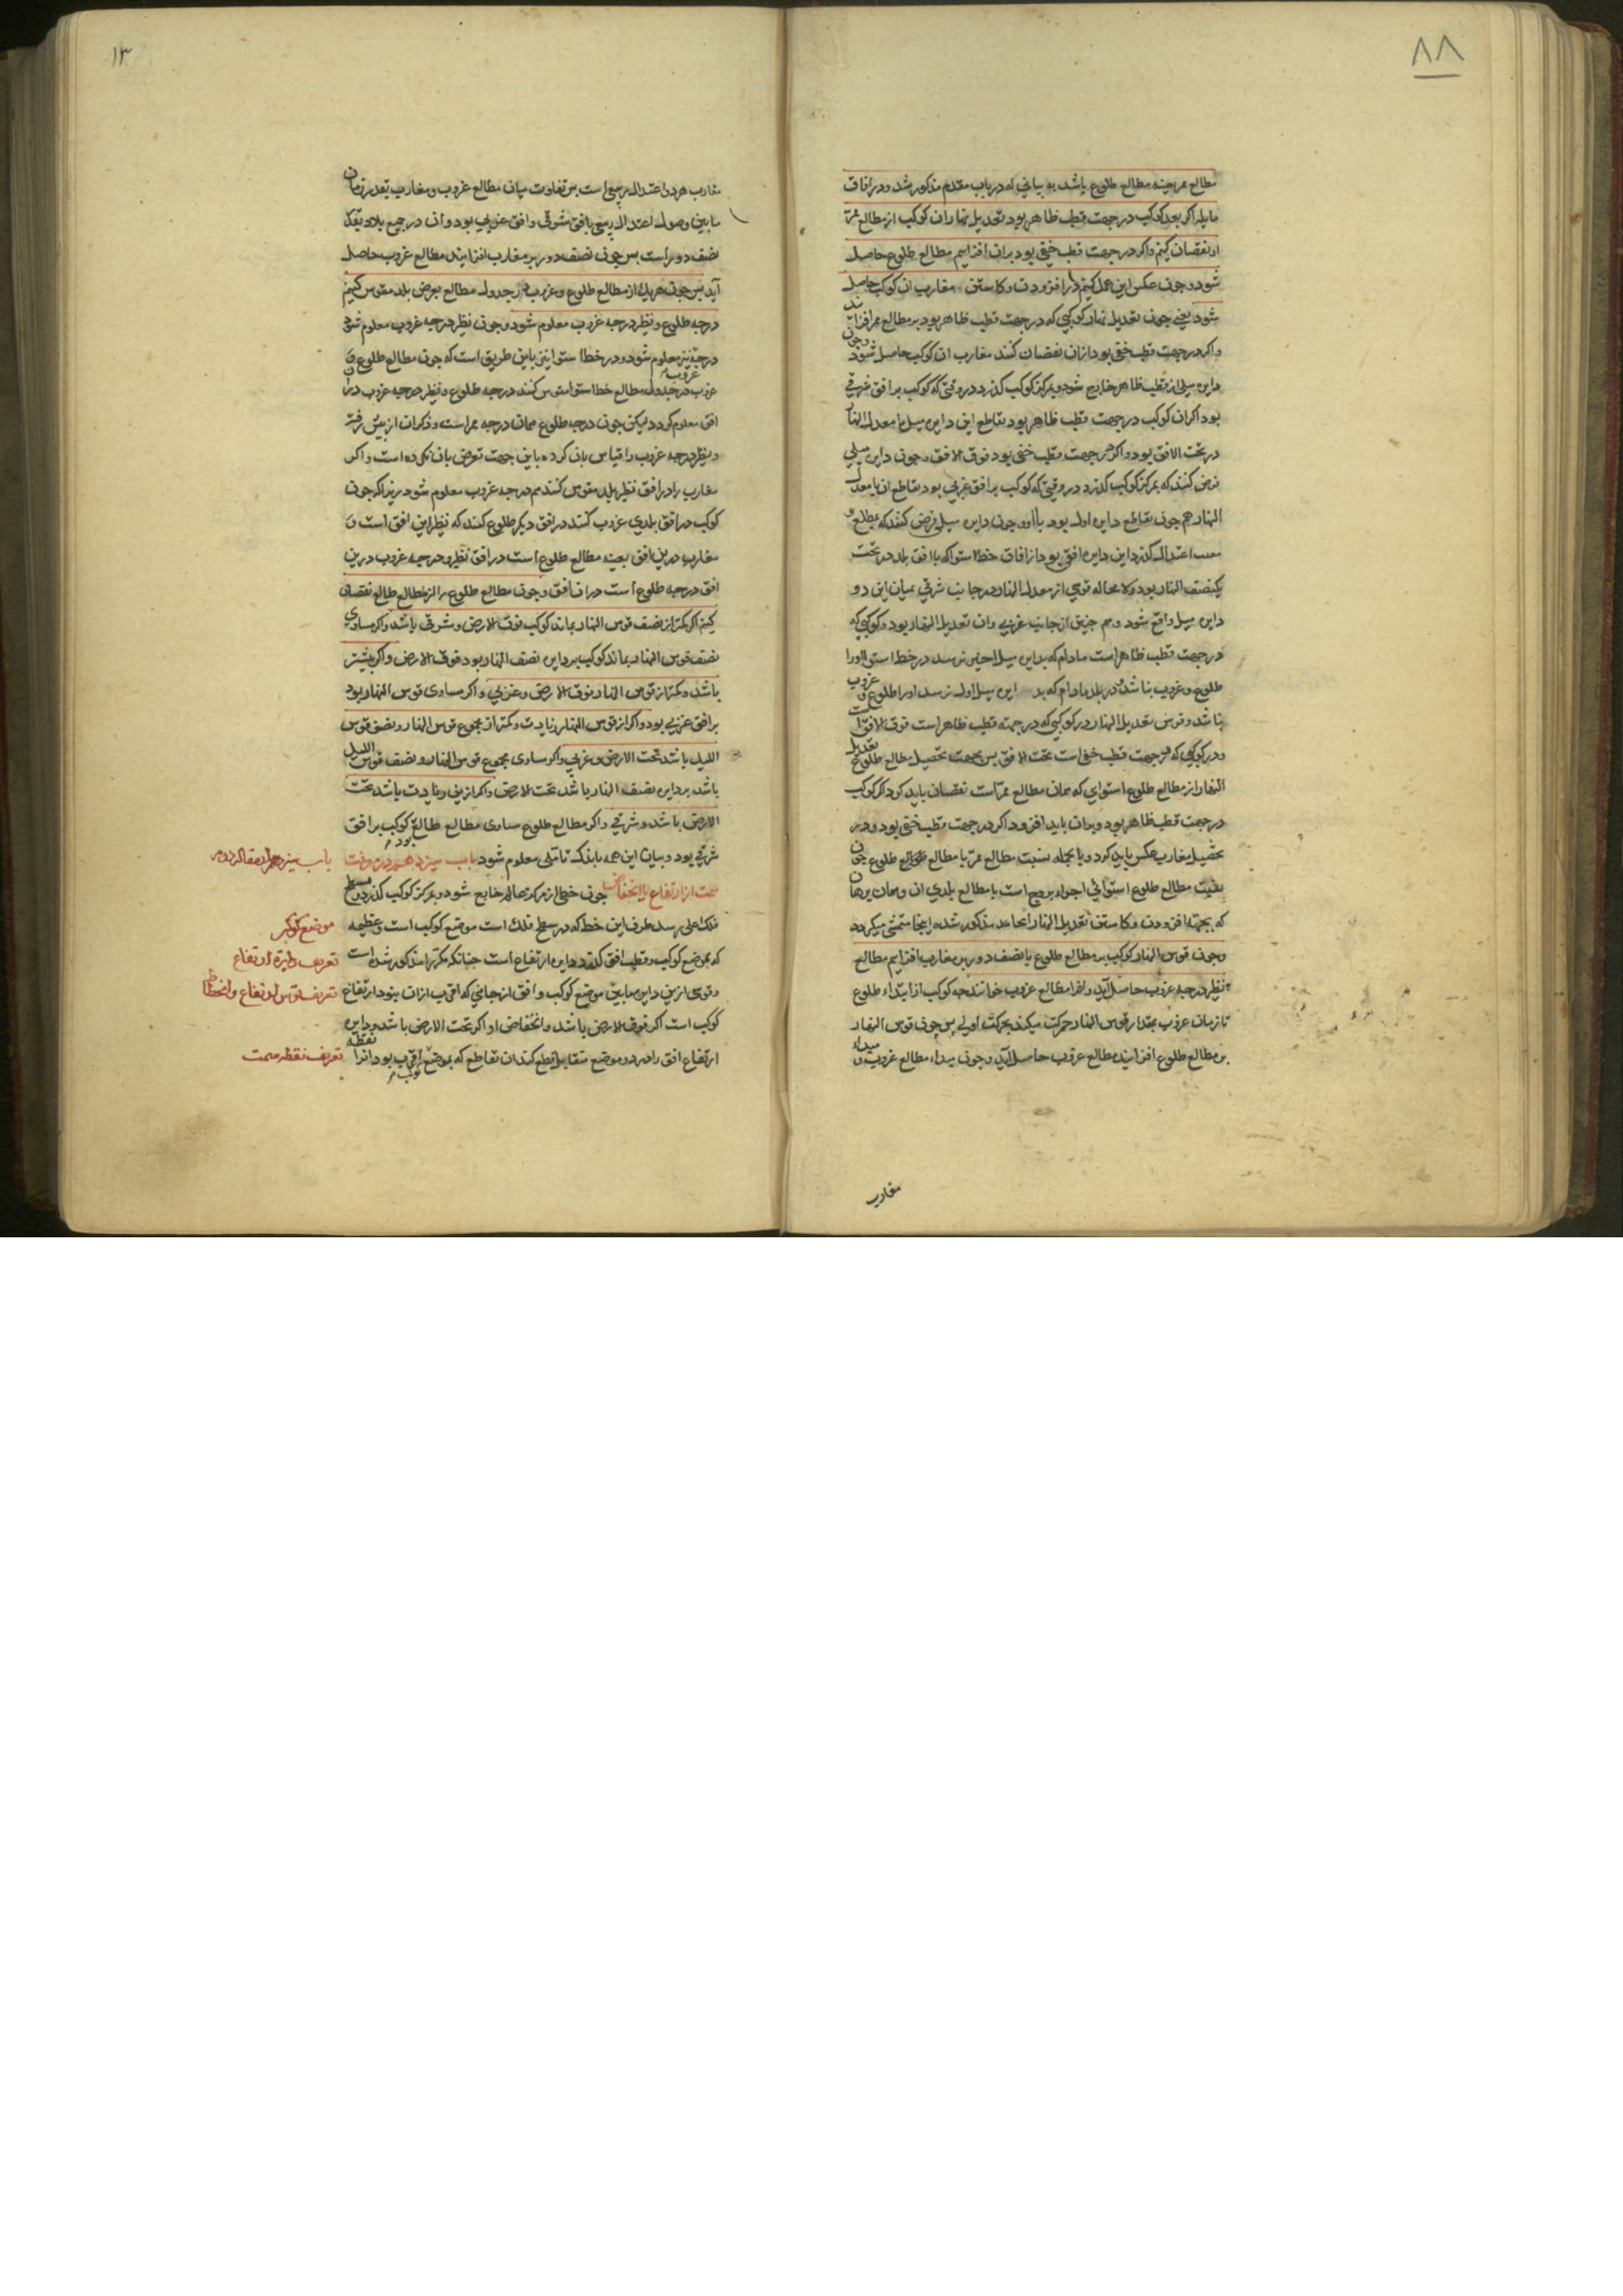 ۸۸
مطالع ممر بعینه مطالع طلوع باشد به بیانی که در باب مقدم مذکور شد و در افاق
مایله اکر بعد کوکب در جهت قطب ظاهر بود تعدیل نهار ان کوکب از مطالع ممر
او نقصان کنیم و اکر در جهت قطب خفی بود بران افزاییم مطالع طلوع حاصل
شود و چون عکس این عمل کنیم در افزودن و کاستن مغارب ان کوکب حاصل
شود یعنی چون تعدیل نهار کوکبی که در جهت قطب ظاهر بود بر مطالع ممر افزایند
و اکر در جهت قطب خفی بود ازان نقصان کنند مغارب ان کوکب حاصل شود و چون
دایره میلی از قطب ظاهر خارج شود و بمرکز کوکب کذرد در وقتی که کوکب بر افق شرقی
بود اکر ان کوکب در جهت قطب ظاهر بود تقاطع این دایره میل با معدل النهار
در تحت الافق بود و اکر در جهت قطب خفی بود فوق الافق و چون دایره میلی
فرض کنند که بمرکز کوکب کذرد در وقتی که کوکب بر افق غربی بود تقاطع ان با معدل
النهار هم چون تقاطع دایره اول بود با او و چون دایره میلی فرض کنند که بمطلع و
مغیب اعتدال کذرد این دایره افقی بود از افاق خط استوا که با افق بلد در تحت
یک نصف النهار بود و لا محاله قوسی از معدل النهار در جانب شرقی میان این دو
دایره میل واقع شود و هم چنین از جانب غربی و ان تعدیل النهار بود و کوکبی که
در جهت قطب ظاهر است مادام که بدایره میل اخیر نرسد در خط استوا او را
طلوع و غروب نباشد و در بلد مادام که بدایره میل اول نرسد او را طلوع و غروب
نباشد و قوس تعدیل النهار در کوکبی که در جهة قطب ظاهر است فوق الافق است
و در کوکبی که در جهت قطب خفی است تحت الافق پس بجهت تحصیل مطالع طلوع تعدیل
النهار از مطالع طلوع استوایی که همان مطالع ممر است نقصان باید کرد اکر کوکب
در جهت قطب ظاهر بود و بران باید افزود اکر در جهت قطب خفی بود و در
تحصیل مغارب عکس باید کرد و بالجمله نسبت مطالع ممر با مطالع طلوع چون
نسبت مطالع طلوع استوائی اجزاء بروج است با مطالع بلدی ان و همان برهان
که بجهة افزودن و کاستن تعدیل النهار انجا مذکور شده اینجا متمشی میکردد
و چون قوس النهار کوکب بر مطالع طلوع یا نصف دور بر مغارب افزاییم مطالع
نظیر درجه غروب حاصل آید و انرا مطالع غروب خوانند چه کوکب از ابتداء طلوع
تا زمان غروب بمقدار قوس النهار حرکت میکند بحرکت اولی پس چون قوس النهار
بر مطالع طلوع افزایند مطالع غروب حاصل آید و چون مبداء مطالع غروب و مبداء
مغارب
۱۳
مغارب هر دو اعتدال ربیعی است پس تفاوت میان مطالع غروب و مغارب بقدر زمان
ما بین وصول اعتدال ربیعی بافق شرقی و افق غربی بود و ان در جمیع بلاد بقدر
نصف دور است پس چون نصف دور بر مغارب افزایند مطالع غروب حاصل
آید پس چون هر یک از مطالع طلوع و غروب از جدول مطالع بعرض بلد مقوس کنیم
درجه طلوع و نظیر درجه غروب معلوم شود و چون نظیر درجه غروب معلوم شود
درجه نیز معلوم شود و در خط استوا نیز باین طریق است که چون مطالع طلوع و
غروب در جدول مطالع خط استوا مقوس کنند درجه طلوع و نظیر درجه غروب در ان
افق معلوم کردد لیکن چون درجه طلوع همان درجه ممر است و ذکر ان از پیش رفته
و نظیر درجه غروب را قیاس بان کرده باین جهت تعرض بان نکرده است و اکر
مغارب را در افق نظیر بلد مقوس کنند هم درجه غروب معلوم شود زیرا که چون
کوکب در افق بلدی غروب کند در افق دیکر طلوع کند که نظیر این افق است و
مغارب در ین افق بعینه مطالع طلوع است در افق نظیر و درجه غروب درین
افق درجه طلوع است در ان افق و چون مطالع طلوع را از مطالع طالع نقصان
کنیم اکر کمتر از نصف قوس النهار بماند کوکب فوق الارض و شرقی باشد و اکر مساوی
نصف قوس النهار بماند کوکب بر دایره نصف النهار بود فوق الارض و اکر بیشتر
باشد و کمتر از قوس النهار فوق الارض و غربی و اکر مساوی قوس النهار بود
بر افق غربی بود و اکر از قوس النهار زیادت و کمتر از مجموع قوس النهار و نصف قوس
اللیل باشد تحت الارض و غربی و اکر مساوی مجموع قوس النهار و نصف قوس اللیل
باشد بر دایره نصف النهار باشد تحت الارض و اکر ازین زیادت باشد تحت
الارض باشد و شرقی و اکر مطالع طلوع مساوی مطالع طالع بود کوکب بر افق
شرقی بود و بیان این همه باندک تاملی معلوم شود باب سیزدهم در معرفت
سمت از ارتفاع یا انخفاض چون خطی از مرکز عالم خارج شود و بمرکز کوکب کذرد و بسطح
فلک اعلی رسد طرف این خط که در سطح فلک است موضع کوکب است و عظیمه
که بموضع کوکب و قطب افق کذرد دایره ارتفاع است چنانکه مکررا مذکور شده است
و قوسی ازین دایره مابین موضع کوکب و افق از جانبی که اقرب ازان نبود ارتفاع
کوکب است اکر فوق الارض باشد و انخفاض او اکر تحت الارض باشد و دایره
ارتفاع افق را در دو موضع متقابل قطع کند ان تقاطع که بموضع کوکب اقرب بود انرا نقطه
موضع کوکب
تعریف دایرة ارتفاع
تعریف قوس ارتفاع و انحطاط
تعریف نقطه سمت